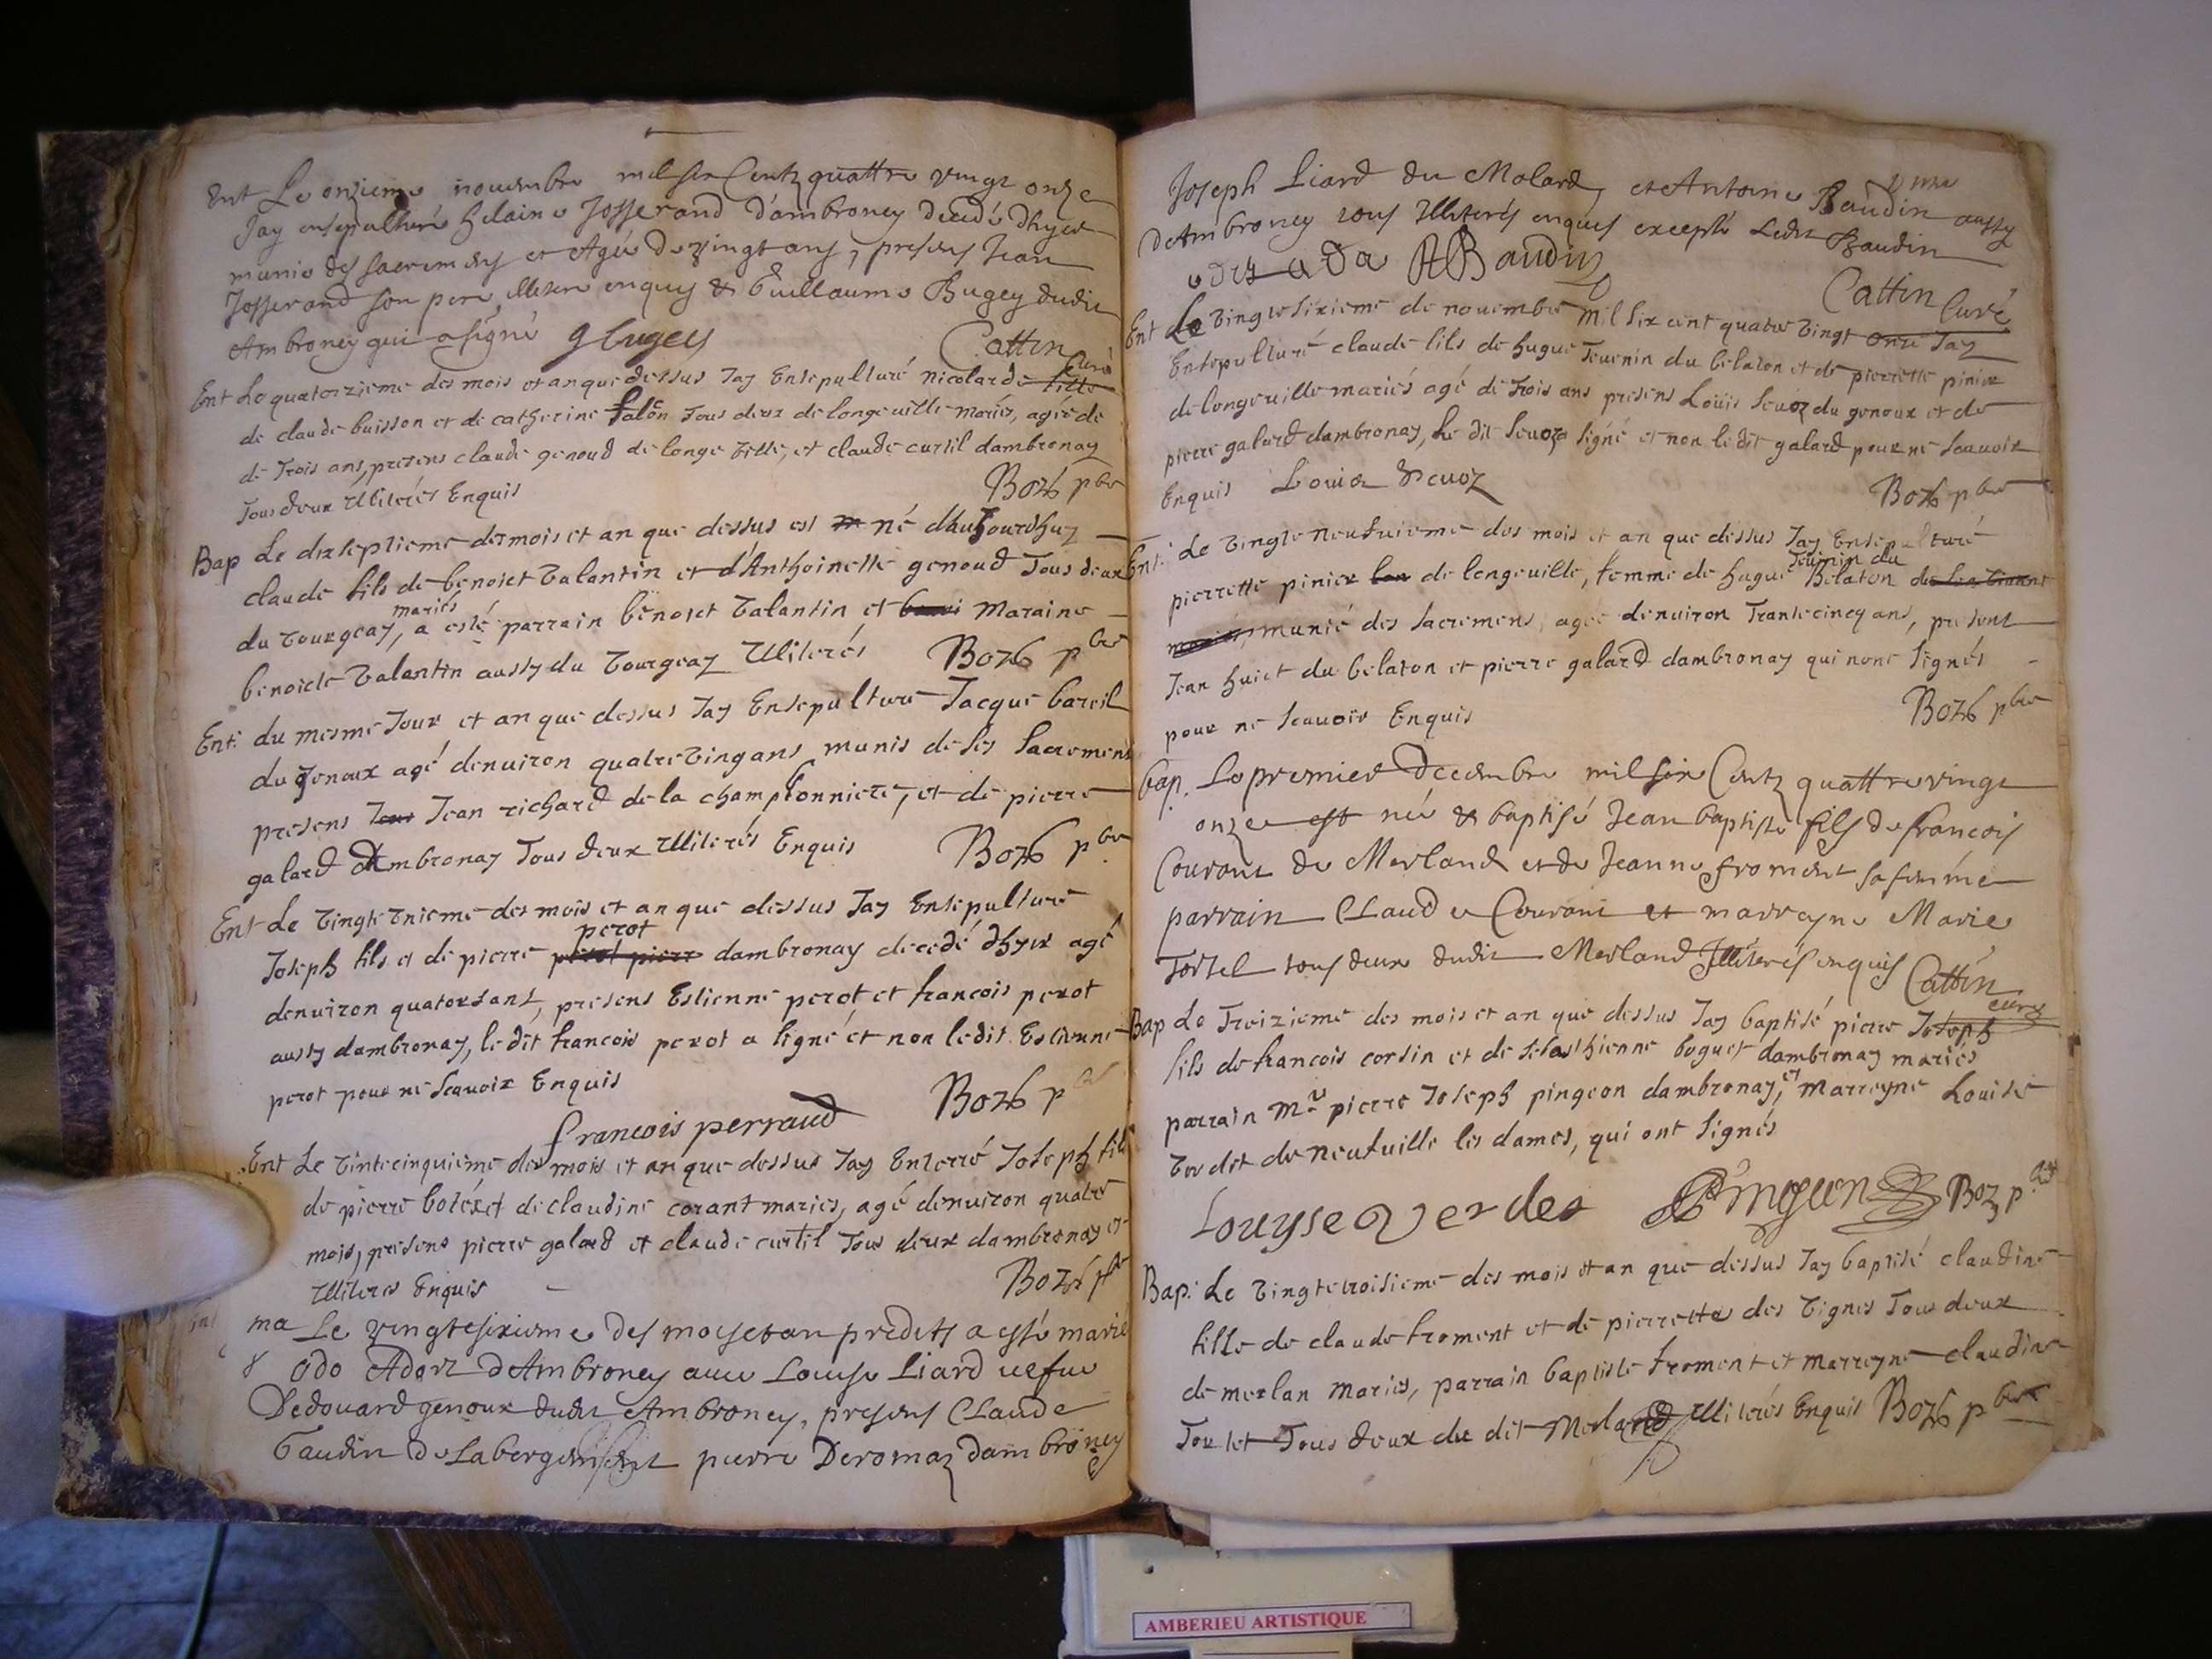 Ent Le onzieme novembre mil six Centz quattre vingt onze
Jay ensepulturé helaine Josserand d'ambroney decedé dhyer
munie des sacremens et Agée de vingt ans, presens Jean
Josserand son pere, illitere enquis & Guillaume Bugey dudit
Ambroney qui a signé g bugey Cattin Curé
Ent Le quatorzieme des mois et an que dessus Jay Ensepulturé nicolarde fille
de claude buisson et de catherine falon Tous deux de longeville mariés, agée de
de Trois ans, presens claude genoud de longe ville, et claude curtil dambronay
Tous deux Illiterés Enquis Boz pbre
Bap Le dixseptieme des mois et an que dessus est né d'auJourdhuy
claude fils de benoict valantin et d'Anthoinette genoud Tous deux
du tourgeay, mariés a esté parrain benoict valantin et Maraine
benoicte valantin aussy du tourgeay Illiterés Boz pbre
Ent. du mesme Jour et an que dessus Jay Ensepulture Jacque bareil
du genoux agé denuiron quatrevingans munis de ses sacremens
presens Jean richard de la championniere, et de pierre
galard dAmbronay Tous deux Illiterés Enquis Boz pbre
Ent Le vingtevnieme des mois et an que dessus Jay Ensepulturé
Joseph fils et de pierre perot dambronay decedé dhyer agé
denuiron quatorsans, presens Estienne perot, et francois perot
aussy dambronay, le dit francois perot a signé et non le dit Estienne
perot pour ne scauoir Enquis Boz p
francois perraud
Ent Le vintecinquieme des mois et an que dessus Jay Enterré Joseph fils
de pierre et de claudine corant mariés, agé denuiron quatre
mois, presens pierre galard et claude curtil Tous deux dambronay et
Illiteres Enquis Boz pbre
ma Le vingtesixieme des mois et an predits a esté marié
odo Adorz d'Ambroney auec Louyse Liard uefue
Dedouard genoux dudit Ambroney, presens Claude
Gaudin de Labergement pierre Deromaz dambroney
Joseph Liard du Molard, et Antoine Baudin
dAmbroney tous Illiterés enquis excepté Ledit Baudin aussy
A Baudin Cattin Curé
Ent Le vingtesixieme de nouembre mil six cent quatre vingt onze Jay
Ensepulturé claude fils de hugue Teuenin du belaton et de pierrette pinier
de longeuille mariés agé de Trois ans presens Louis seuoz du genoux et de
pierre galard dambronay, Le dit seuoz a signé et non le dit galard pour ne scauoir
Enquis Louis Seuoz Boz pbre
Ent. Le vingteneufuieme des mois et an que dessus Jay Ensepulturé
pierrette pinier de longeuille, femme de hugue Teuenin du Belaton
munié des sacremens, agée denuiron Trantecincq ans, present
Jean huiet du belaton et pierre galard dambronay qui nont signés
pour ne scauoir Enquis Boz pbre
bap. Le premier Decembre mil six Centz quattre vingt
onze est né & baptisé Jean baptiste fils de francois
Courant de Merland et de Jeanne froment sa femme
parrain Claude Courant et marreyne Marie
Tortel tous deux dudit Merland Illiterés enquis Cattin curé
Bap Le Treizieme des mois et an que dessus Jay baptisé pierre Joseph
fils de francois corsin et de sebasthienne boguet dambronay mariés
parrain Mre pierre Joseph pingeon dambronay, et Marreyne Louise
verdet de neufuille les dames, qui ont signés
Louyse Verdes Pingeon Boz pbre
Bap. Le vingtetroisieme des mois et an que dessus Jay baptisé claudine
fille de claude froment et de pierrette des vignes Tous deux
de merlan mariés, parrain baptiste froment et marreyne claudine
Tortet Tous deux du dit Merland Illiterés Enquis Boz pbre
AMBERIEU ARTISTIQUE